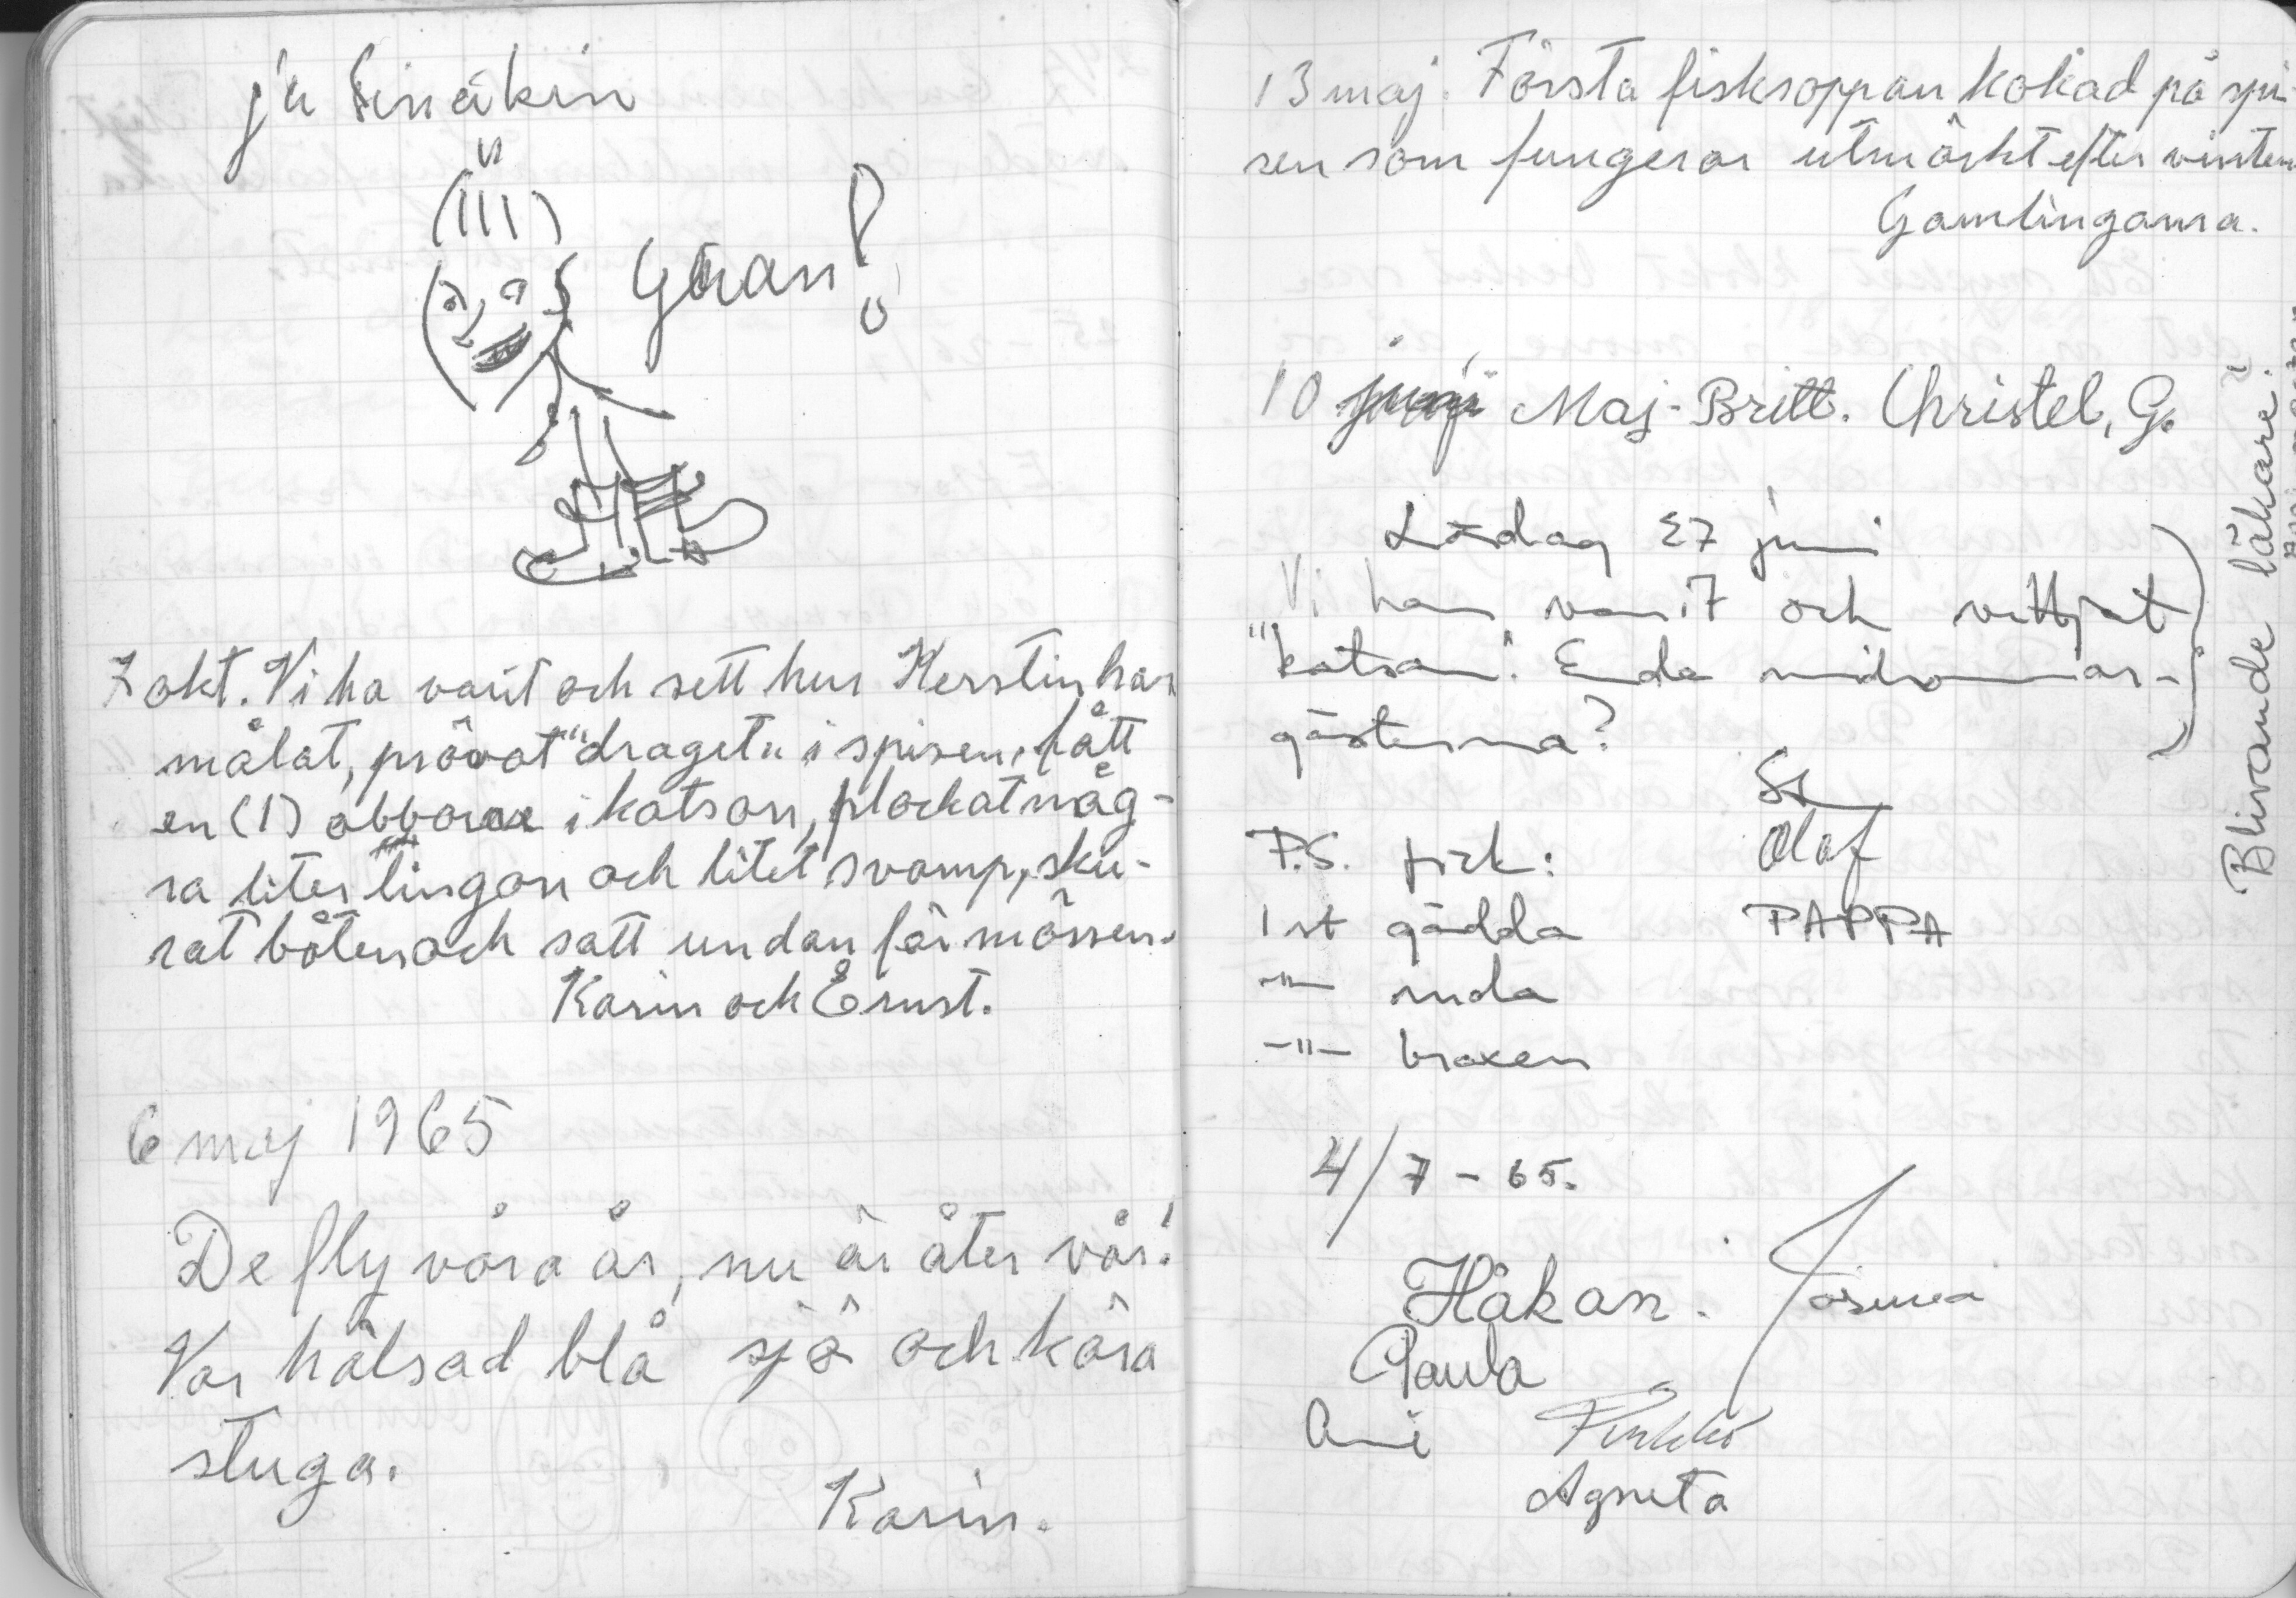 ja Sinäkin
Göran!
7 okt. Vi ha varit och sett hur Kerstin har
målat, prövat "draget" i spisen, fått
en (1) abborre i katsan, plockat någ-
ra liter lingon och litet svamp, sku-
rat båten och satt undan för mössen.
Karin och Ernst.
6 maj 1965
De fly våra år, nu är åter vår!
Var hälsad blå sjö och kära
stuga.
Karin.
13 maj. Första fisksoppan kokad på spi-
sen som fungerar utmärkt efter vintern
Gamlingarna.
10 Maj-Britt. Christel, G.
Lördag 27 juni
Vi har varit och vittjat
"katsan". Enda midsommar-
gästerna?
Olof
P.S. fick:
1 st gädda PAPPA
-"- ruda
-"- braxen
Blivande läkare!
4/7-65.
Håkan.
Paula
Pirkko
Agneta